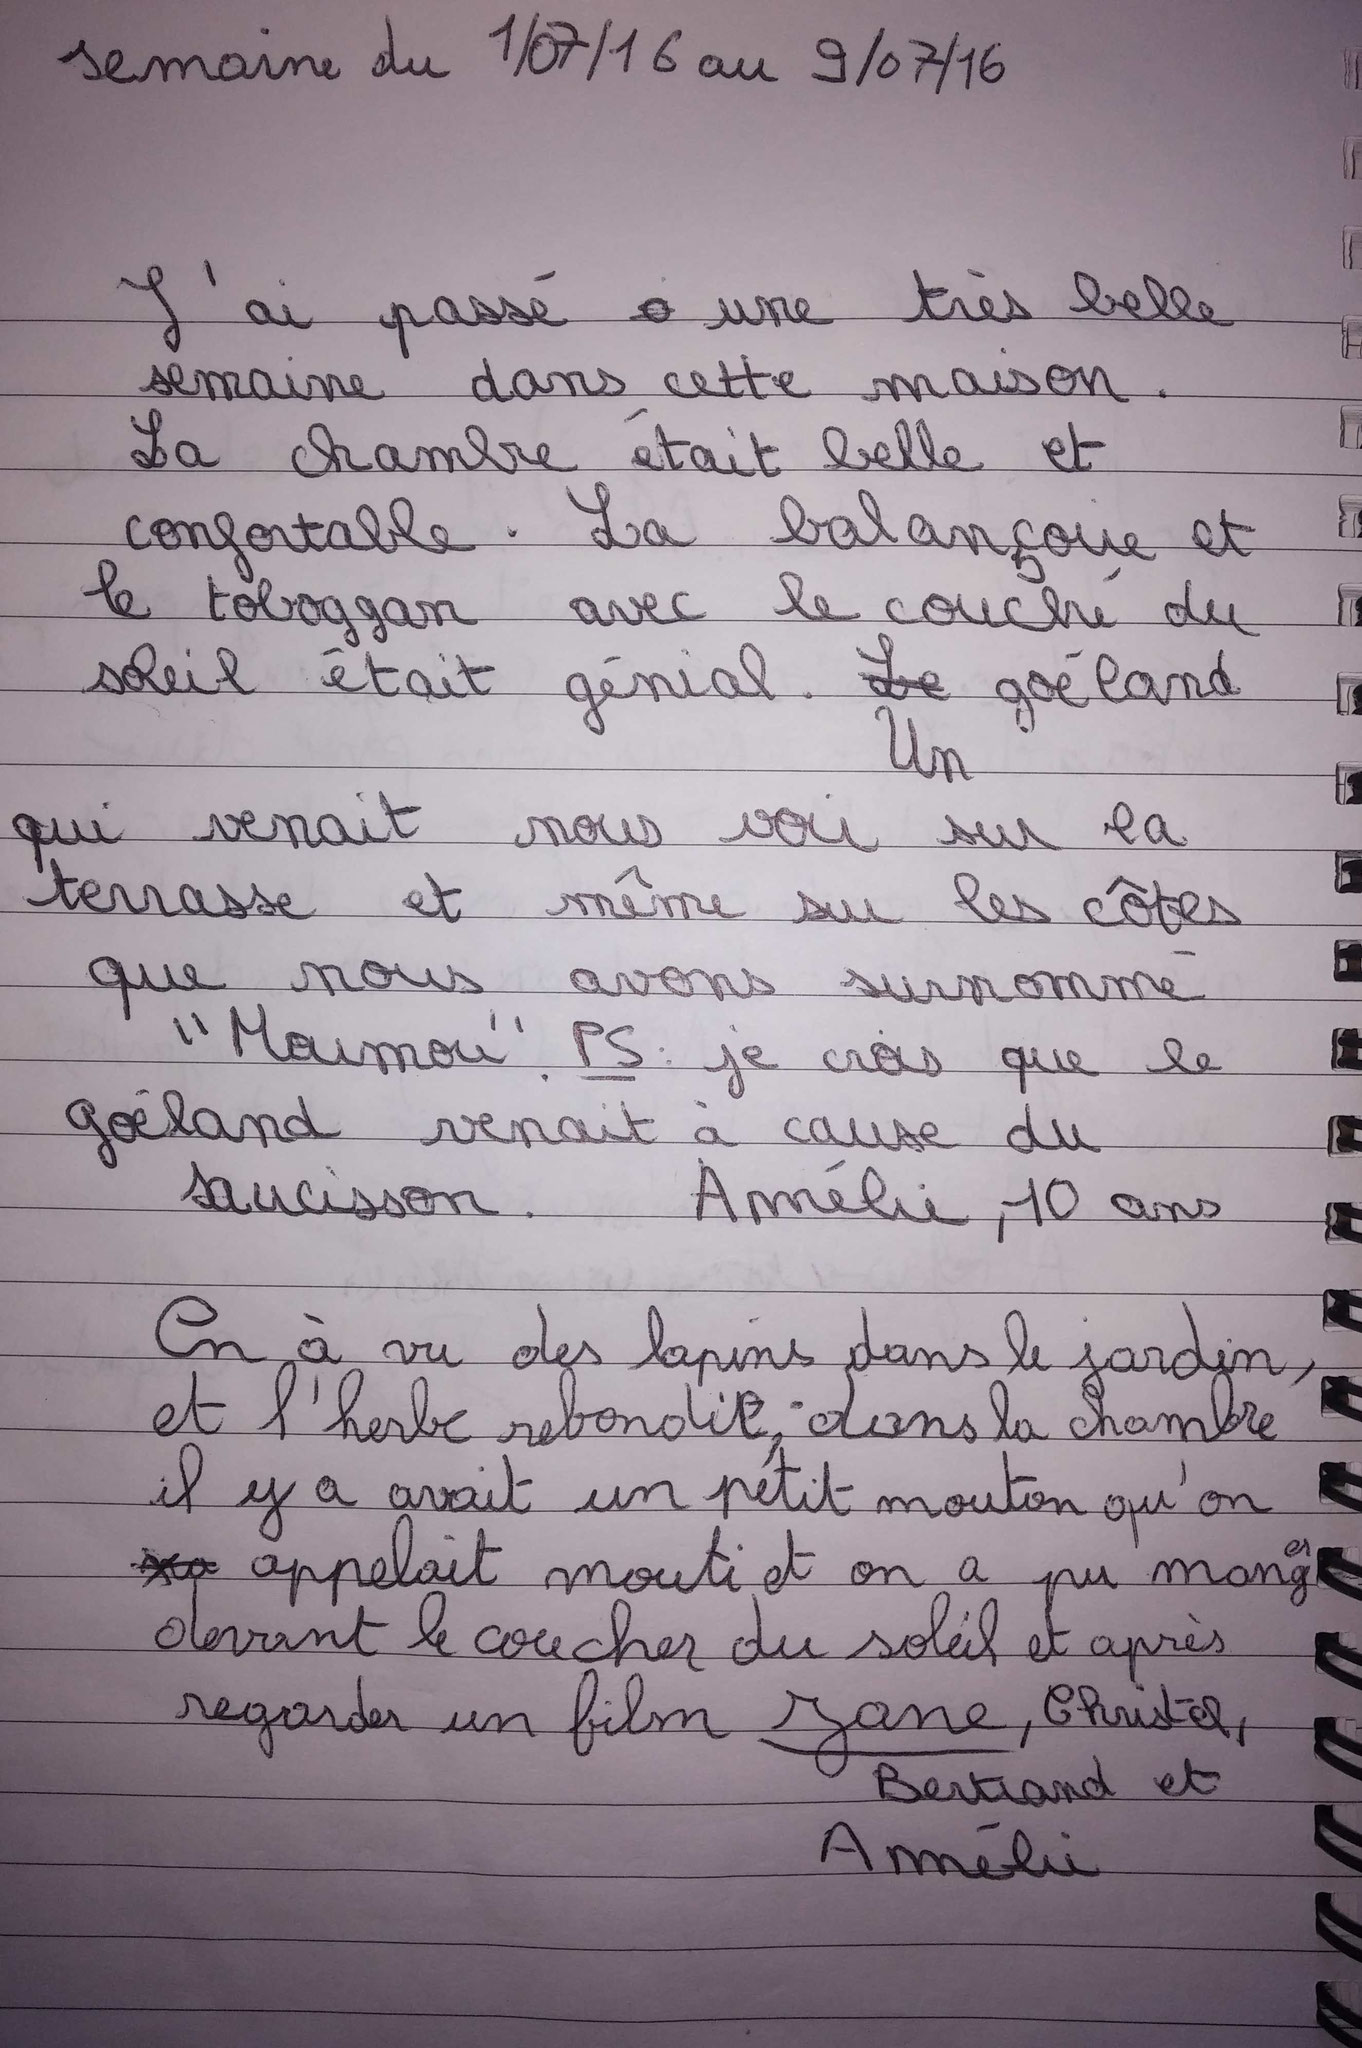 semaine du 1/07/16 au 9/07/16
J'ai passé une très belle
semaine dans cette maison.
La chambre était belle et
confortable. La balançoire et
le toboggan avec le couché du
soleil était génial. Le goéland
Un
qui venait nous voir sur la
terrasse et même sur les côtes
que nous avons surnommé
"Moumou". PS: je crois que le
goéland venait à cause du
saucisson. Amélie, 10 ans
On à vu des lapins dans le jardin,
et l'herbe rebondit, dans la chambre
il y a avait un pétit mouton qu'on
appelait mouti et on a pu manger
devant le coucher du soléil et après
regarder un film Zane, Christel,
Bertrand et
Amélie